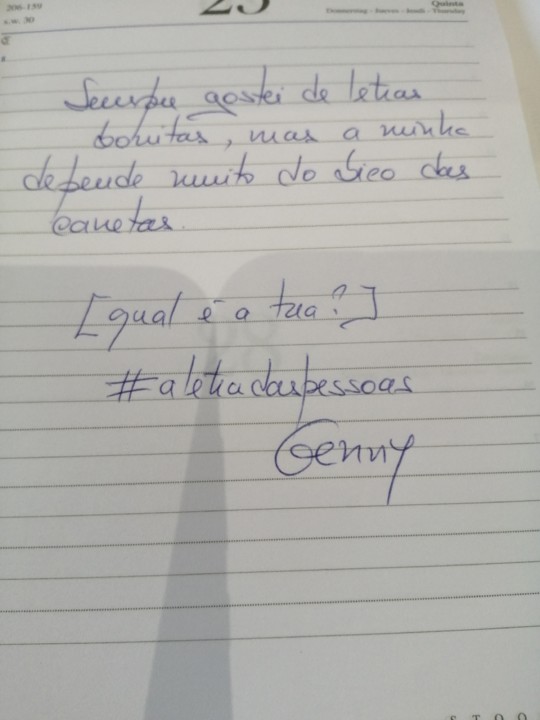 206-159
s.w. 30
25
Quinta
Donnerstag - Jueves - Jeudi - Thursday
Sempre gostei de letras
bonitas, mas a minha
depende muito do bico das
canetas.
[qual é a tua?]
#aletradaspessoas
Genny
S T Q Q